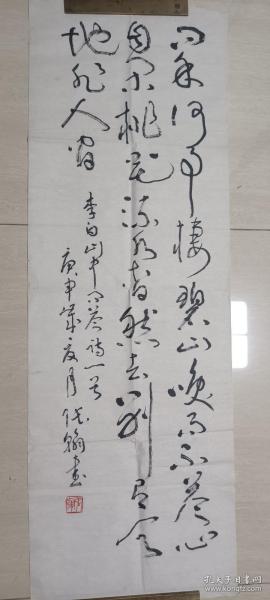 问余何事棲碧山笑而不答心
自闲桃花流水杳然去别有天
地非人间
李白山中问答诗一首
庚申岁夏月
孔夫子旧书网